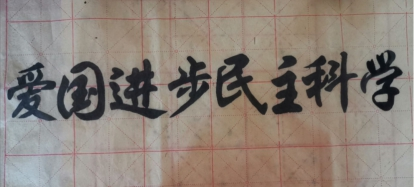 爱国进步民主科学